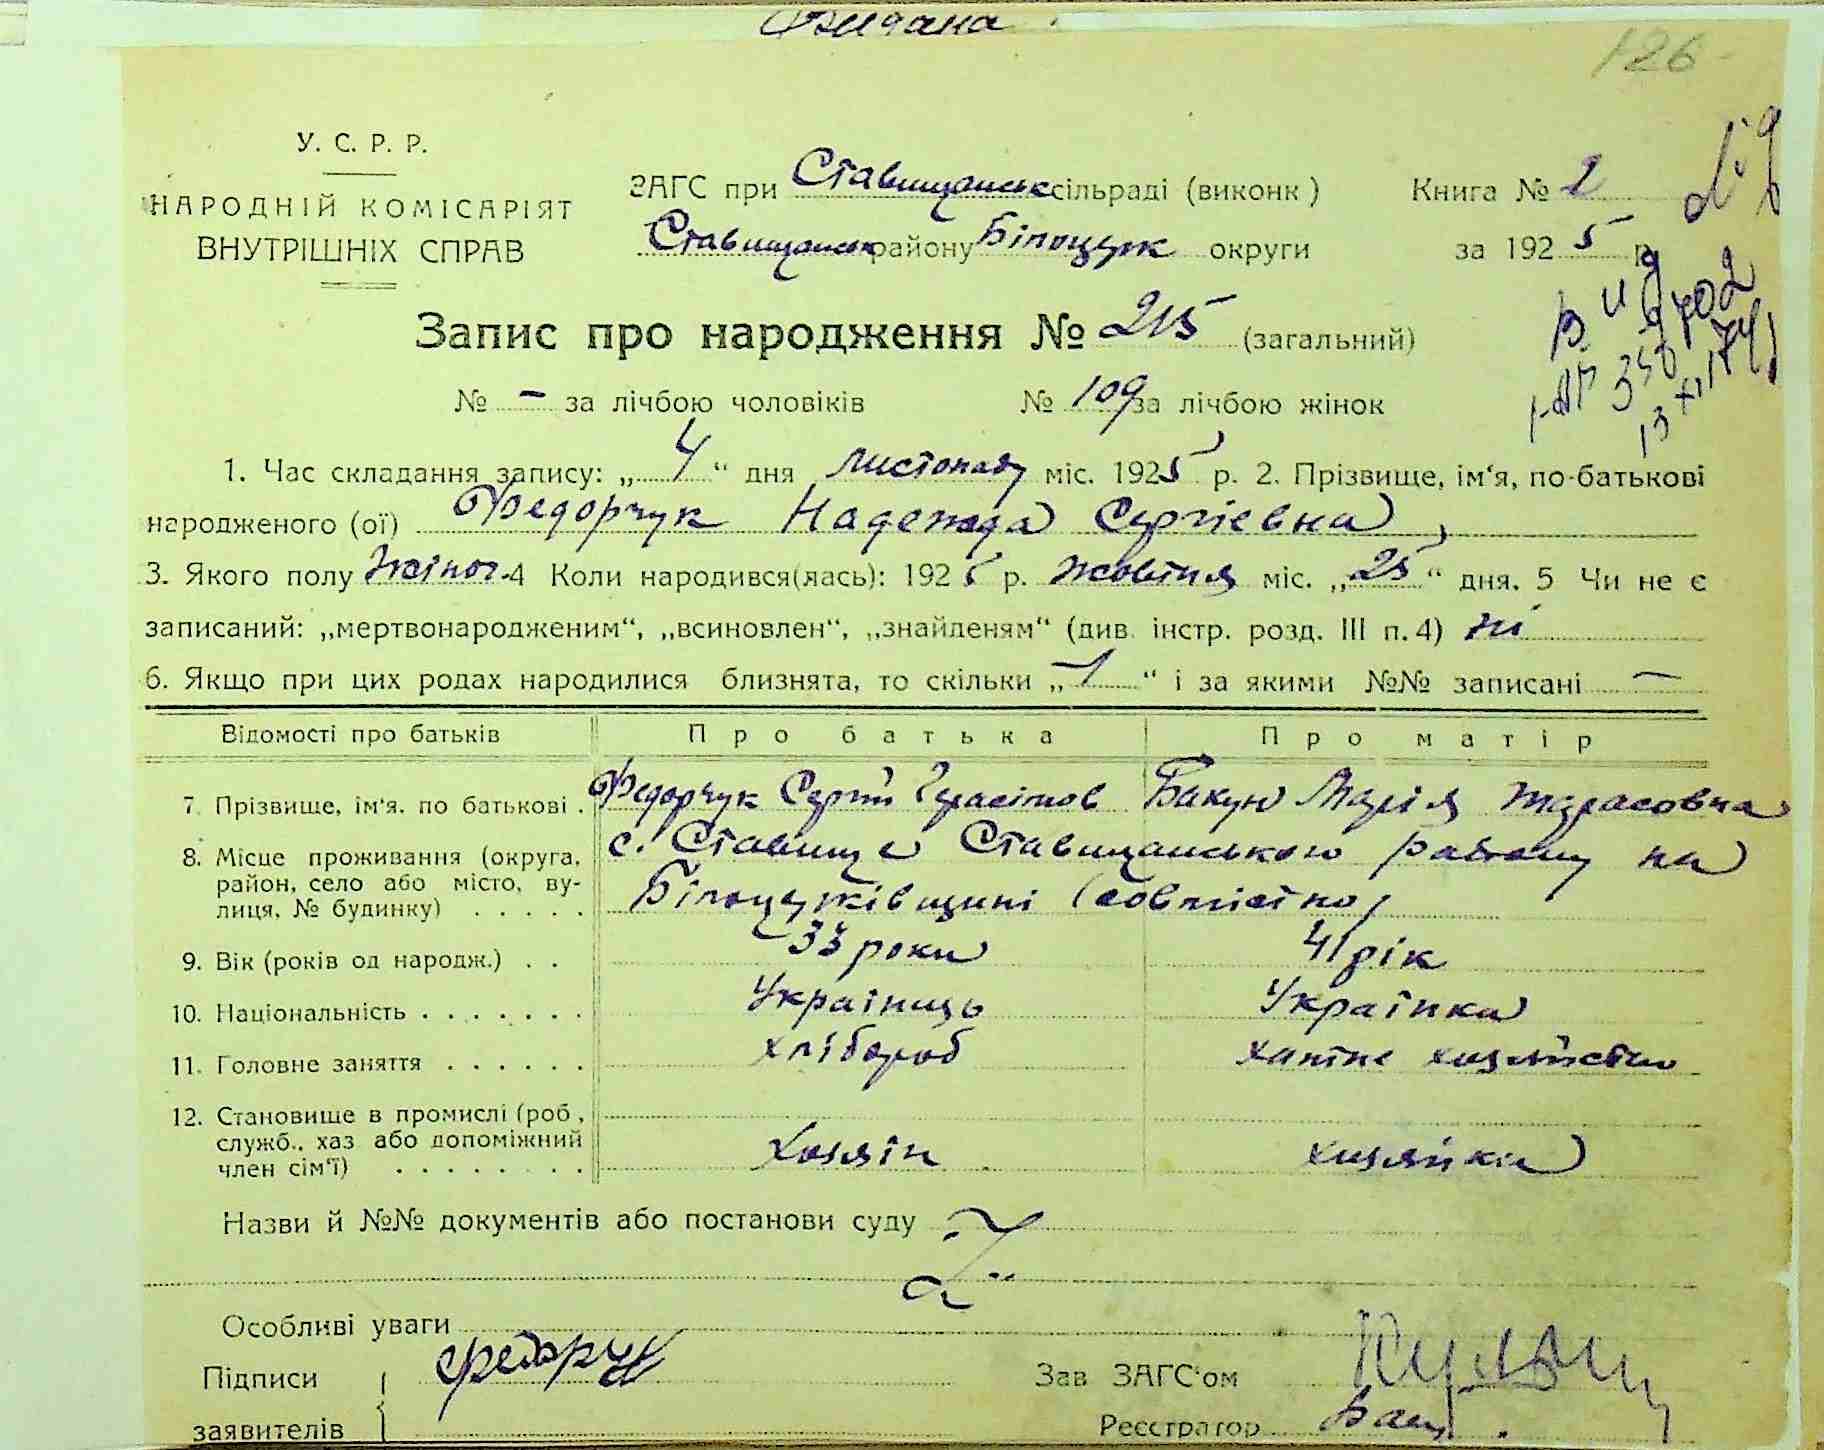 126
У. С. Р. Р.
НАРОДНІЙ КОМІСАРІЯТ
ВНУТРІШНІХ СПРАВ
ЗАГС при Ставищанськ сільраді (виконк)
Ставищанськ району Білоцерк округи
Книга № 2
за 1925 р.
Запис про народження № 215 (загальний)
№ – за лічбою чоловіків № 109 за лічбою жінок
1. Час складання запису: „4“ дня листопаду міс. 1925 р. 2. Прізвище, ім‘я, по-батькові
народженого (ої) Федорчук Надежда Сергієвна
3. Якого полу жіноч. 4 Коли народився(лась): 1925 р. жовтня міс. „25“ дня. 5 Чи не є
записаний: „мертвонародженим“, „всиновлен“, „знайденям“ (див. інстр. розд. III п. 4) ні
6. Якщо при цих родах народилися близнята, то скільки „1“ і за якими №№ записані –
Відомості про батьків Про батька Про матір
7. Прізвище, ім‘я. по батькові . Федорчук Сергій Герасімов Бакун Марія Тарасовна
8. Місце проживання (округа, район, село або місто, вулиця, № будинку) . . . . . с. Ставище Ставищанського району на
Білоцерківщині (совмістно)
9. Вік (років од народж.) . . 33 роки 41 рік
10. Національність . . . . . . . Українець Українка
11. Головне заняття . . . . . . хлібороб хатнє хозяйство
12. Становище в промислі (роб., служб., хаз або допоміжний член сім‘ї) . . . . . . . . хозяїн хозяйка
Назви й №№ документів або постанови суду
Особливі уваги
Підписи заявителів Федорчук
Зав ЗАГС‘ом
Реєстратор